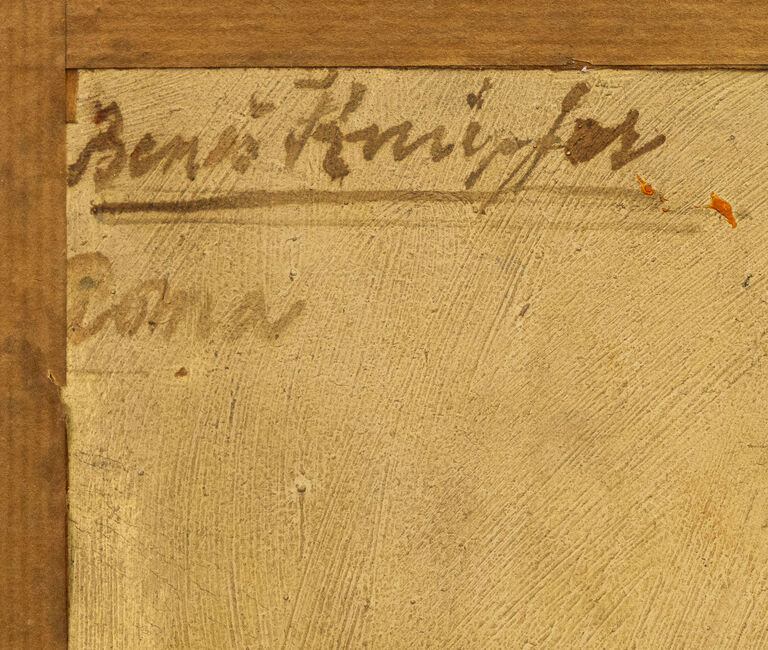 Beneš Knüpfer
Roma